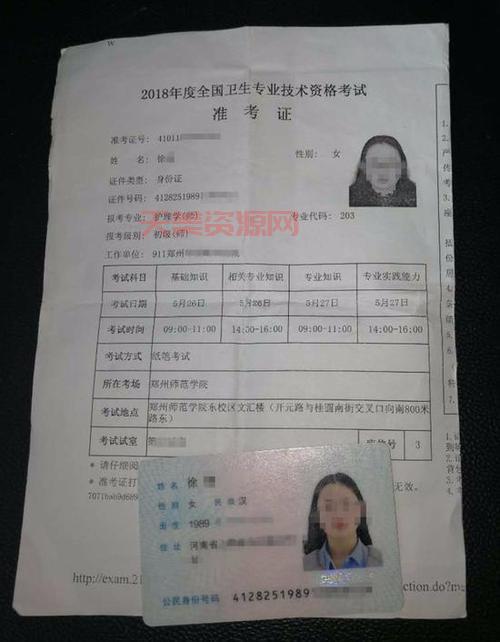 W
2018年度全国卫生专业技术资格考试
准考证
准考证号: 41011
性别: 女
姓 名: 徐
证件类型: 身份证
证件号码: 4128251989
报考专业: 护理学(师)
专业代码: 203
报考级别: 初级(师)
工作单位: 911郑州
天美资源网
考试科目 基础知识 相关专业知识 专业知识 专业实践能力
考试日期 5月26日 5月26日 5月27日 5月27日
考试时间 09:00-11:00 14:00-16:00 09:00-11:00 14:00-16:00
考试方式 纸笔考试
所在考场 郑州师范学院
考试地点 郑州师范学院东校区文汇楼（开元路与桂圆南街交叉口向南800米路东）
考试试室 第
号 3
* 请仔细阅
* 准考证打
无效。
7071bab9d689
姓名 徐
性别 女 民族 汉
出生 1989
住址 河南省
公民身份号码 4128251989
http://exam.21
ction.do?m